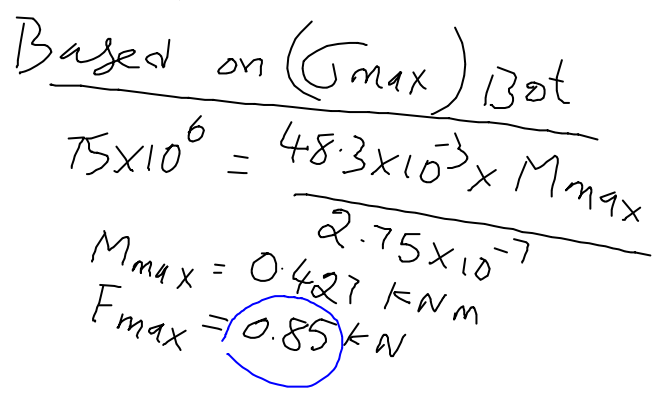 Based on (σmax) Bot
75×10⁶ = 48.3×10⁻³ × Mmax / 2.75×10⁻⁷
Mmax = 0.427 KNm
Fmax = 0.85 KN